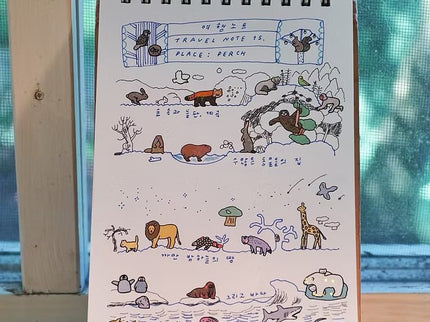 여행노트
TRAVEL NOTE 15.
PLACE: PERCH
수많은 동물들의 집
까만 밤하늘의 땅
그리고 바다